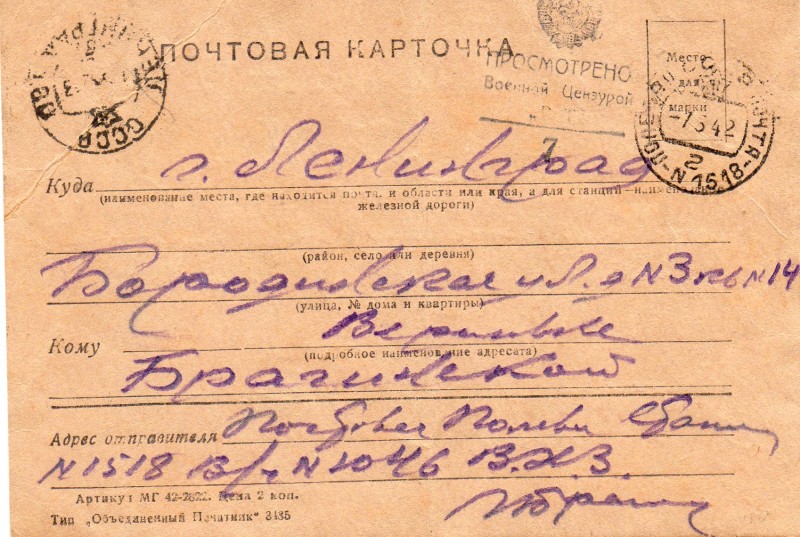 ПОЧТОВАЯ КАРТОЧКА
ПРОСМОТРЕНО
Военной Цензурой
Место
для
марки
-7 5 42
2
N 1518
СССР
Куда г. Ленинград
(наименование места, где находится почта, и области или края, а для станций—наимено
железной дороги)
(район, село или деревня)
Бородинская ул. д N3 кв N14
(улица, № дома и квартиры)
Кому
(подробное наименование адресата)
Брагинской
Адрес отправителя Полевая
N1518 В/ч N
Артикул МГ 42-2822. Цена 2 коп.
Тип „Объединенный Печатник" 3485